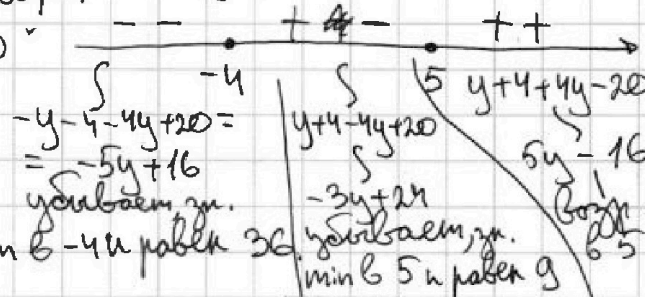 − − + − + +
-4 5
-y-4-4y+20=
= -5y+16
убывает, зн.
в -4 и равен 36
y+4-4y+20
-3y+24
убывает, зн.
min в 5 и равен 9
y+4+4y-20
5y-16
возр
в 5